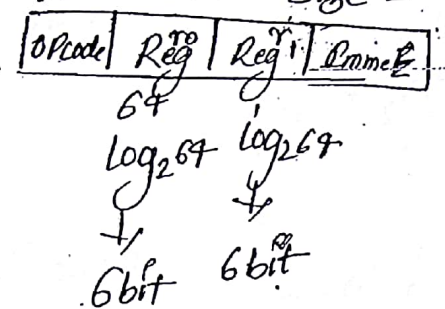 OPcode Reg r0 Reg r1
64
log₂64 log₂64
6 bit 6 bit